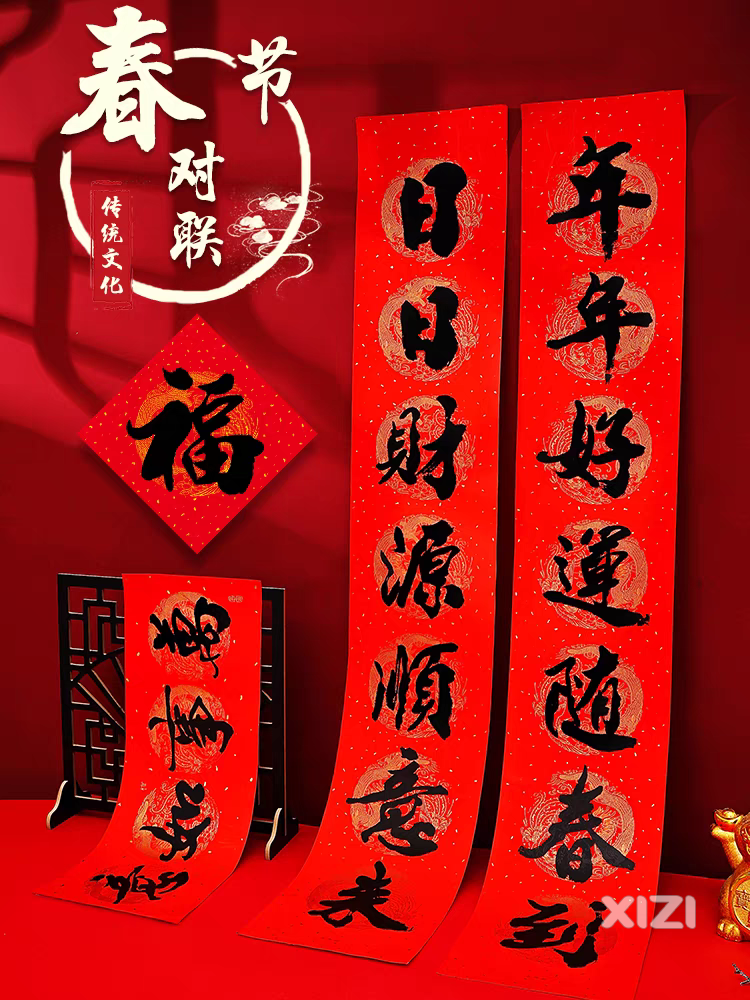 春节
对联
传统文化
福
年年好運随春到
日日財源順意来
萬事如意
XIZI